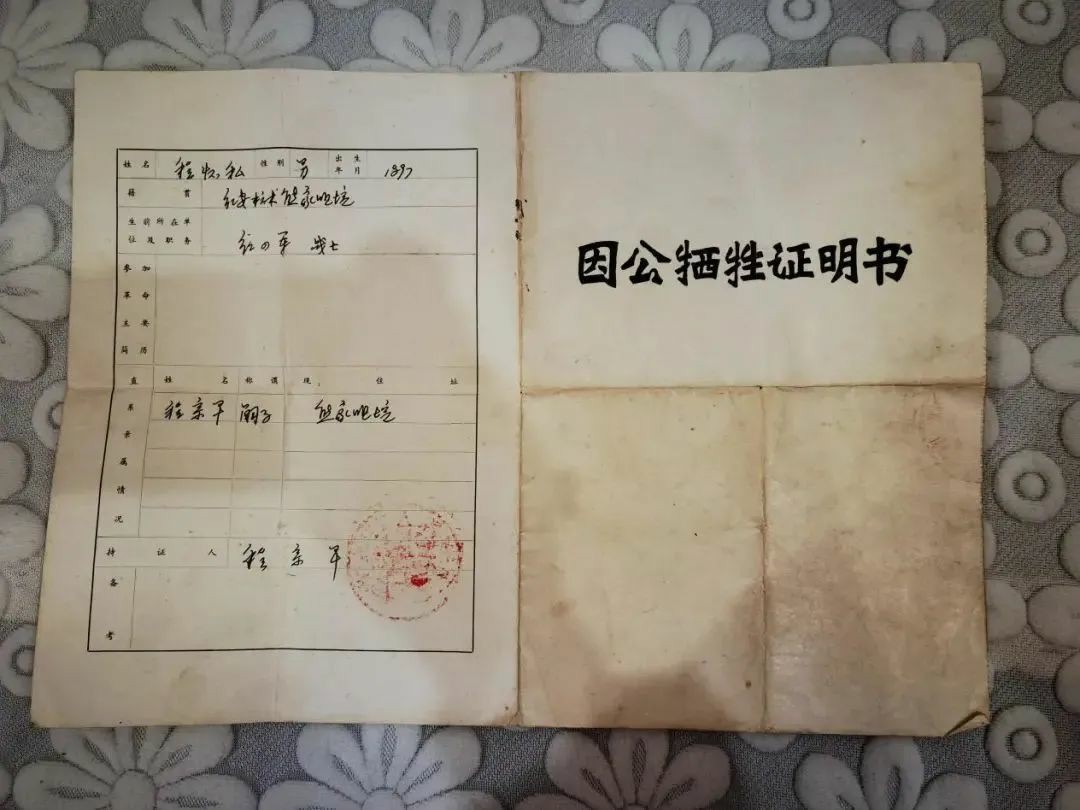 姓名 程 性别 男 出生年月 1897
籍贯 红安 熊家咀垸
生前所在单位及职务 红四军 战士
参加革命主要简历
直系亲属情况 姓名 称谓 现住址
程 嗣子 熊家咀垸
持证人 程
备考
因公牺牲证明书